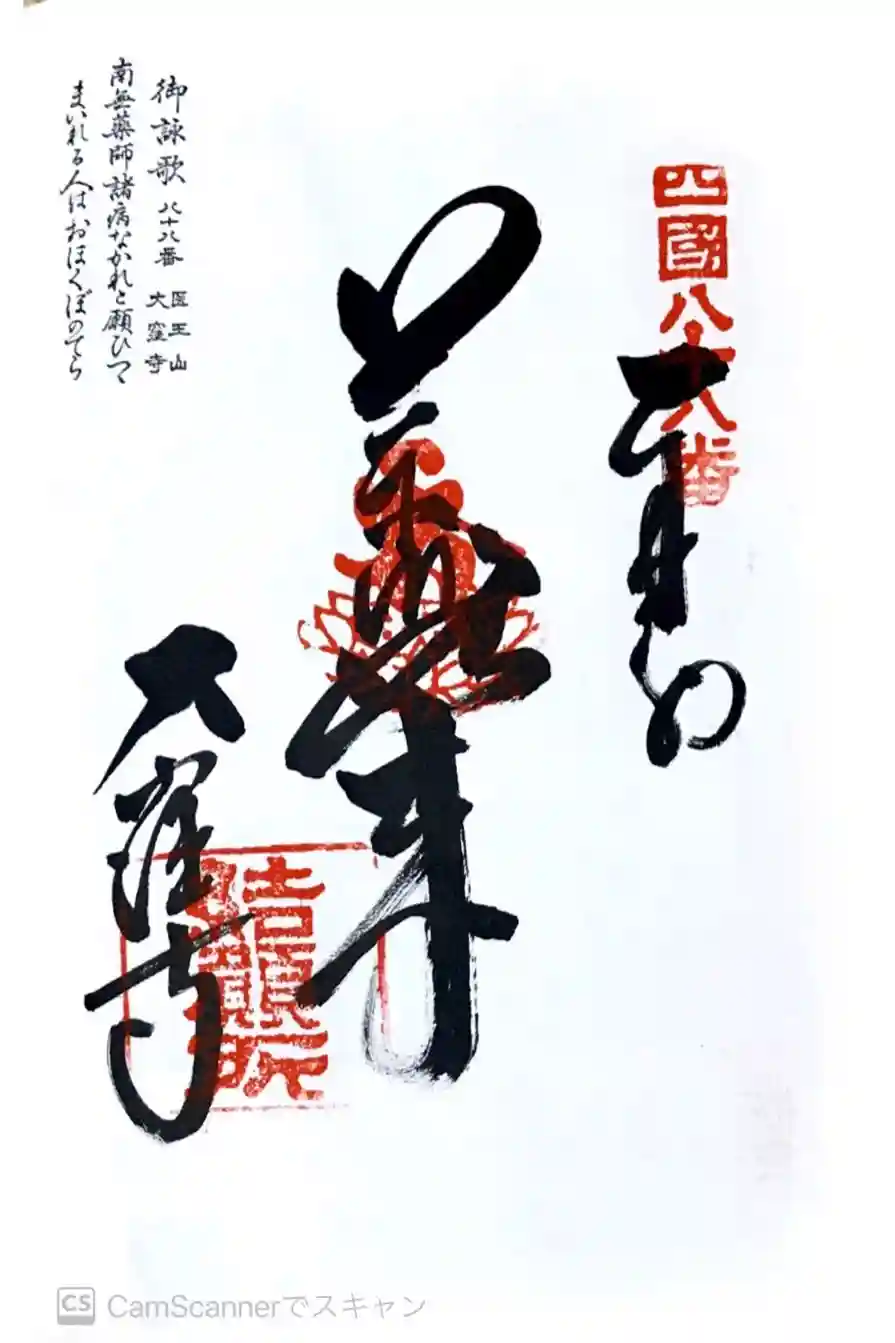 四國八十八番
奉納
薬師如来
大窪寺
結願所
御詠歌 八十八番 医王山 大窪寺
南無薬師諸病なかれと願ひつゝ
まいれる人はおほくぼのてら
CS CamScannerでスキャン